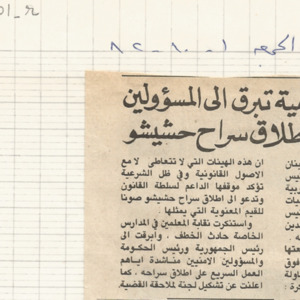 الجمعه ١ - ١٠ - ٨٢
ية تبرق الى المسؤولين
طلاق سراح حشيشو
ان هذه الهيئات التي لا تتعاطى الا مع
الاصول القانونية وفي ظل الشرعية
تؤكد موقفها الداعم لسلطة القانون
وتدعو الى اطلاق سراح حشيشو صونا
للقيم المعنوية التي يمثلها.
واستنكرت نقابة المعلمين في المدارس
الخاصة حادث الخطف، وابرقت الى
رئيس الجمهورية ورئيس الحكومة
والمسؤولين الامنيين مناشدة اياهم
العمل السريع على اطلاق سراحه، كما
اعلنت عن تشكيل لجنة لملاحقة القضية.